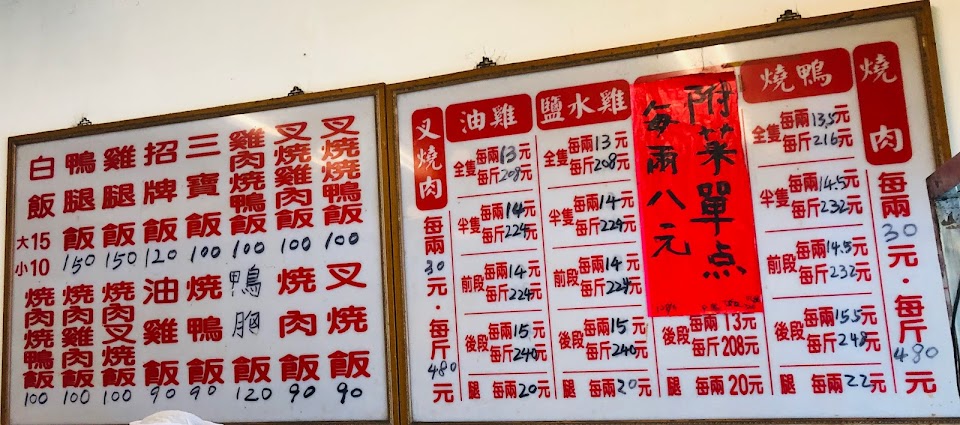 叉燒燒鴨飯 100
叉燒雞肉飯 100
雞肉燒鴨飯 100
三寶飯 100
招牌飯 120
雞腿飯 150
鴨腿飯 150
白飯 大15 小10
叉燒飯 90
燒肉飯 90
鴨胸飯 120
燒鴨飯 90
油雞飯 90
燒肉叉燒飯 100
燒肉雞肉飯 100
燒肉燒鴨飯 100
燒肉
每兩30元·每斤480
燒鴨
全隻 每兩13.5元
每斤216元
半隻 每兩14.5元
每斤232元
前段 每兩14.5元
每斤232元
後段 每兩15.5元
每斤248元
腿 每兩22元
附菜單点
每兩八元
後段 每兩13元
每斤208元
腿 每兩20元
鹽水雞
全隻 每兩13元
每斤208元
半隻 每兩14元
每斤224元
前段 每兩14元
每斤224元
後段 每兩15元
每斤240元
腿 每兩20元
油雞
全隻 每兩13元
每斤208元
半隻 每兩14元
每斤224元
前段 每兩14元
每斤224元
後段 每兩15元
每斤240元
腿 每兩20元
叉燒肉
每兩30元·每斤480元